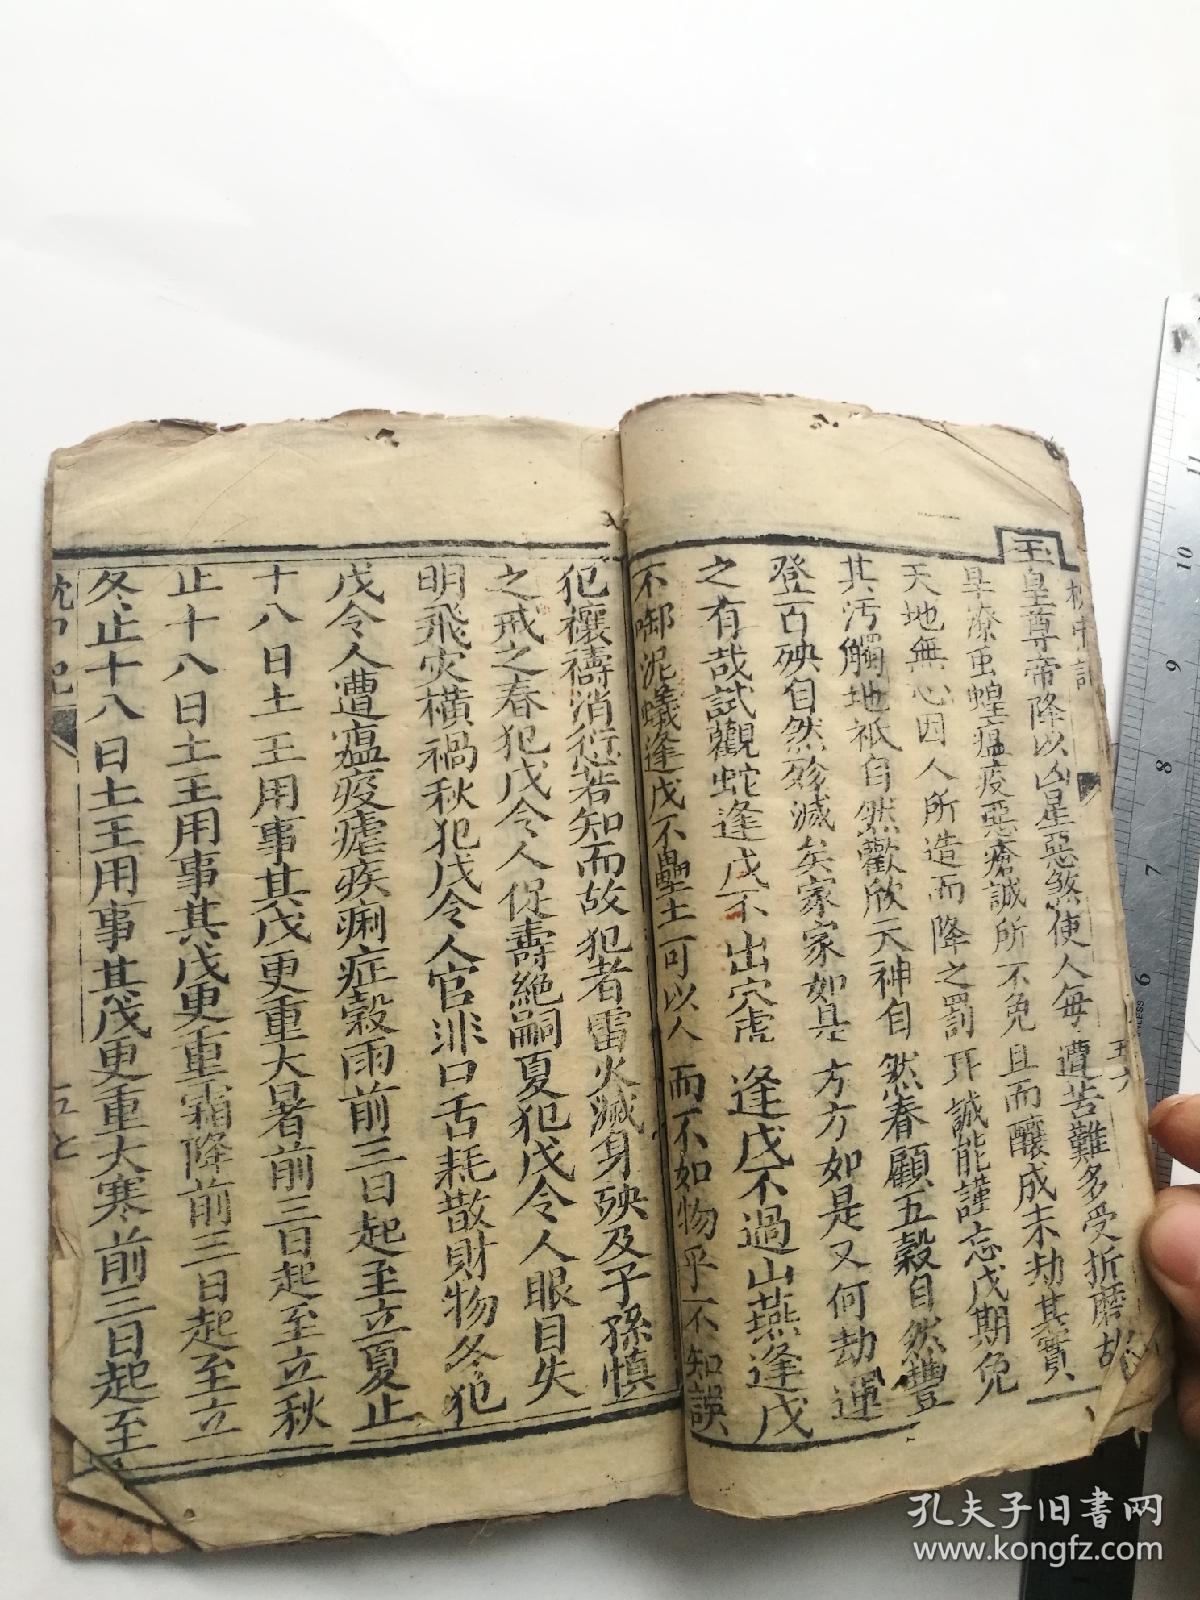 玉
皇尊帝降以凶星惡煞使人每遭苦難多受折磨故
旱潦虫蝗瘟疫惡瘡誠所不免且而釀成末劫其實
天地無心因人所造而降之罰耳誠能謹忘戊期免
其汚觸地祇自然歡欣天神自然春顧五穀自然豐
登百殃自然殄滅矣家家如是方方如是又何劫運
之有哉試觀蛇逢戊不出穴虎逢戊不過山燕逢戊
不啣泥蟻逢戊不壘土可以人而不如物乎不知誤
犯禳禱消愆若知而故犯者雷火滅身殃及子孫慎
之戒之春犯戊令人促壽絶嗣夏犯戊令人眼目失
明飛灾橫禍秋犯戊令人官非口舌耗散財物冬犯
戊令人遭瘟疫瘧疾痢症穀雨前三日起至立夏止
十八日土王用事其戊更重大暑前三日起至立秋
止十八日土王用事其戊更重霜降前三日起至立
冬止十八日土王用事其戊更重大寒前三日起至
五六
五七
11
10
9
8
7
6
孔夫子旧書网
www.kongfz.com